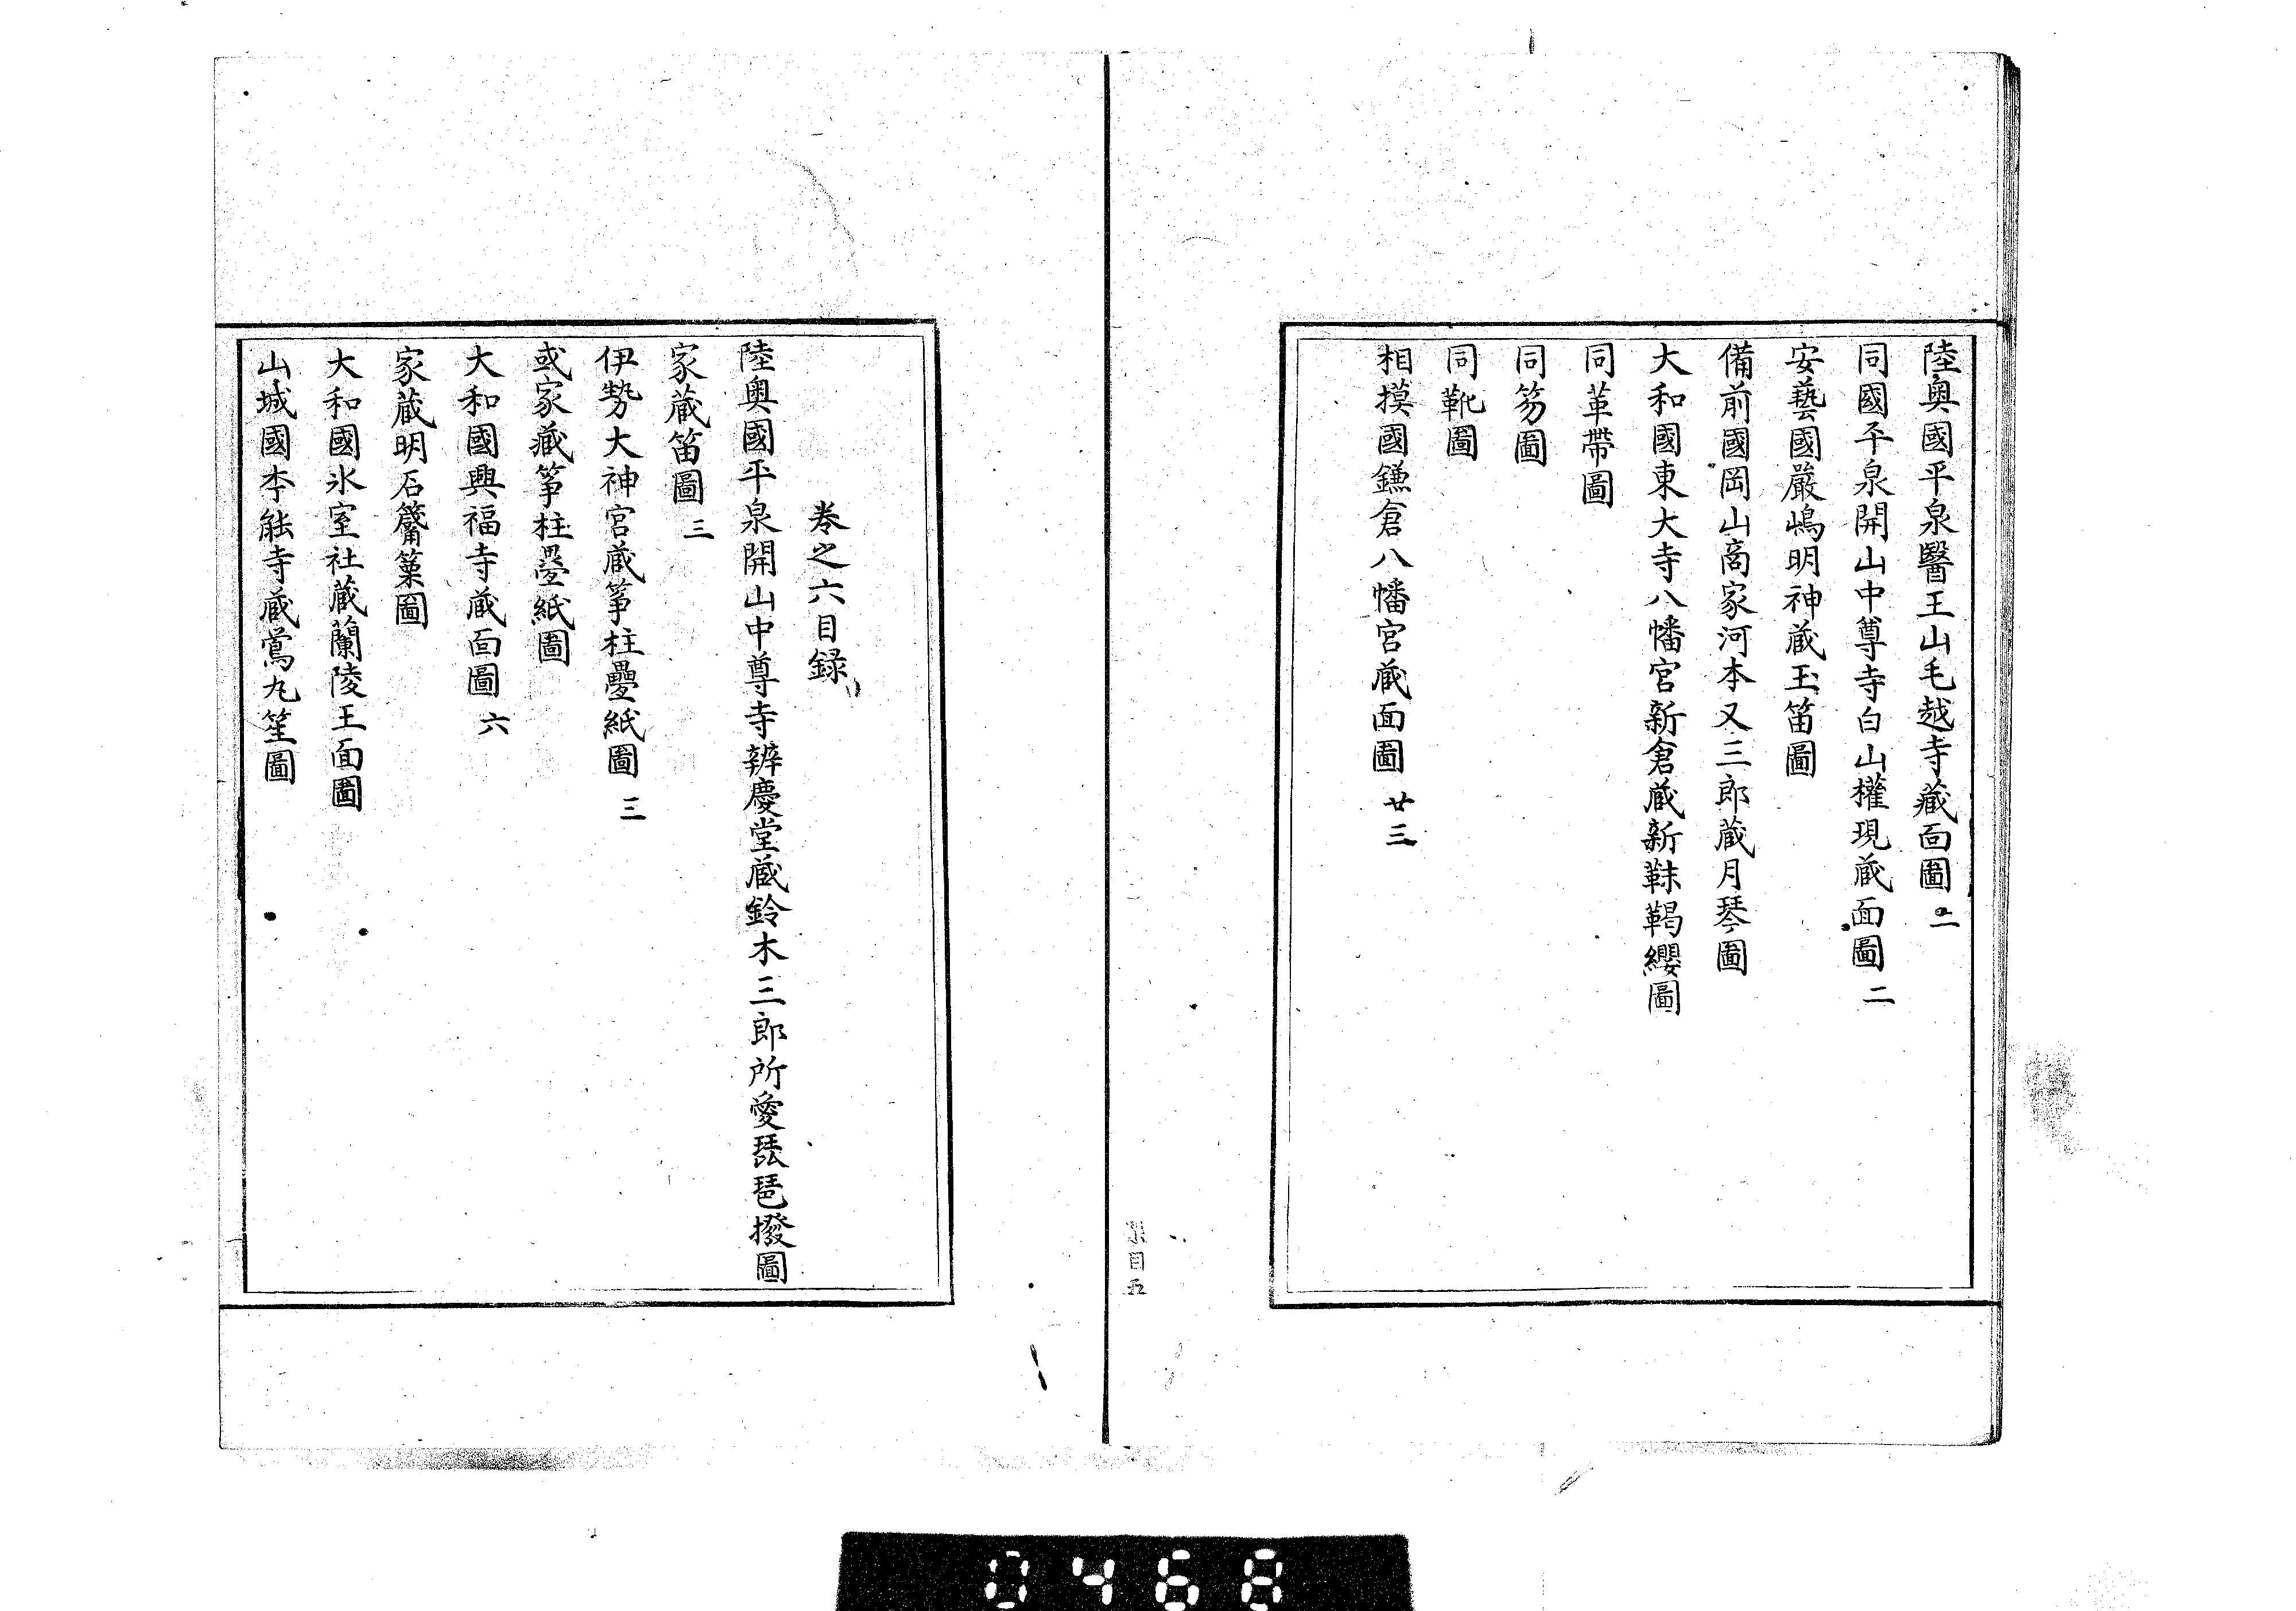 陸奥國平泉醫王山毛越寺蔵面圖 二
同國平泉開山中尊寺白山權現蔵面圖 二
安藝國嚴嶋明神蔵玉笛圖
備前國岡山商家河本又三郎蔵月琴圖
大和國東大寺八幡宮新倉蔵新靺鞨纓圖
同革帶圖
同笏圖
同靴圖
相摸國鎌倉八幡宮蔵面圖 廿三
目五
巻之六目録
陸奥國平泉開山中尊寺辨慶堂蔵鈴木三郎所愛琵琶撥圖
家蔵笛圖 三
伊勢大神宮蔵箏柱疊紙圖 三
或家蔵箏柱疊紙圖
大和國興福寺蔵面圖 六
家蔵明石篳篥圖
大和國氷室社蔵蘭陵王面圖
山城國李能寺蔵鶯丸笙圖
0468